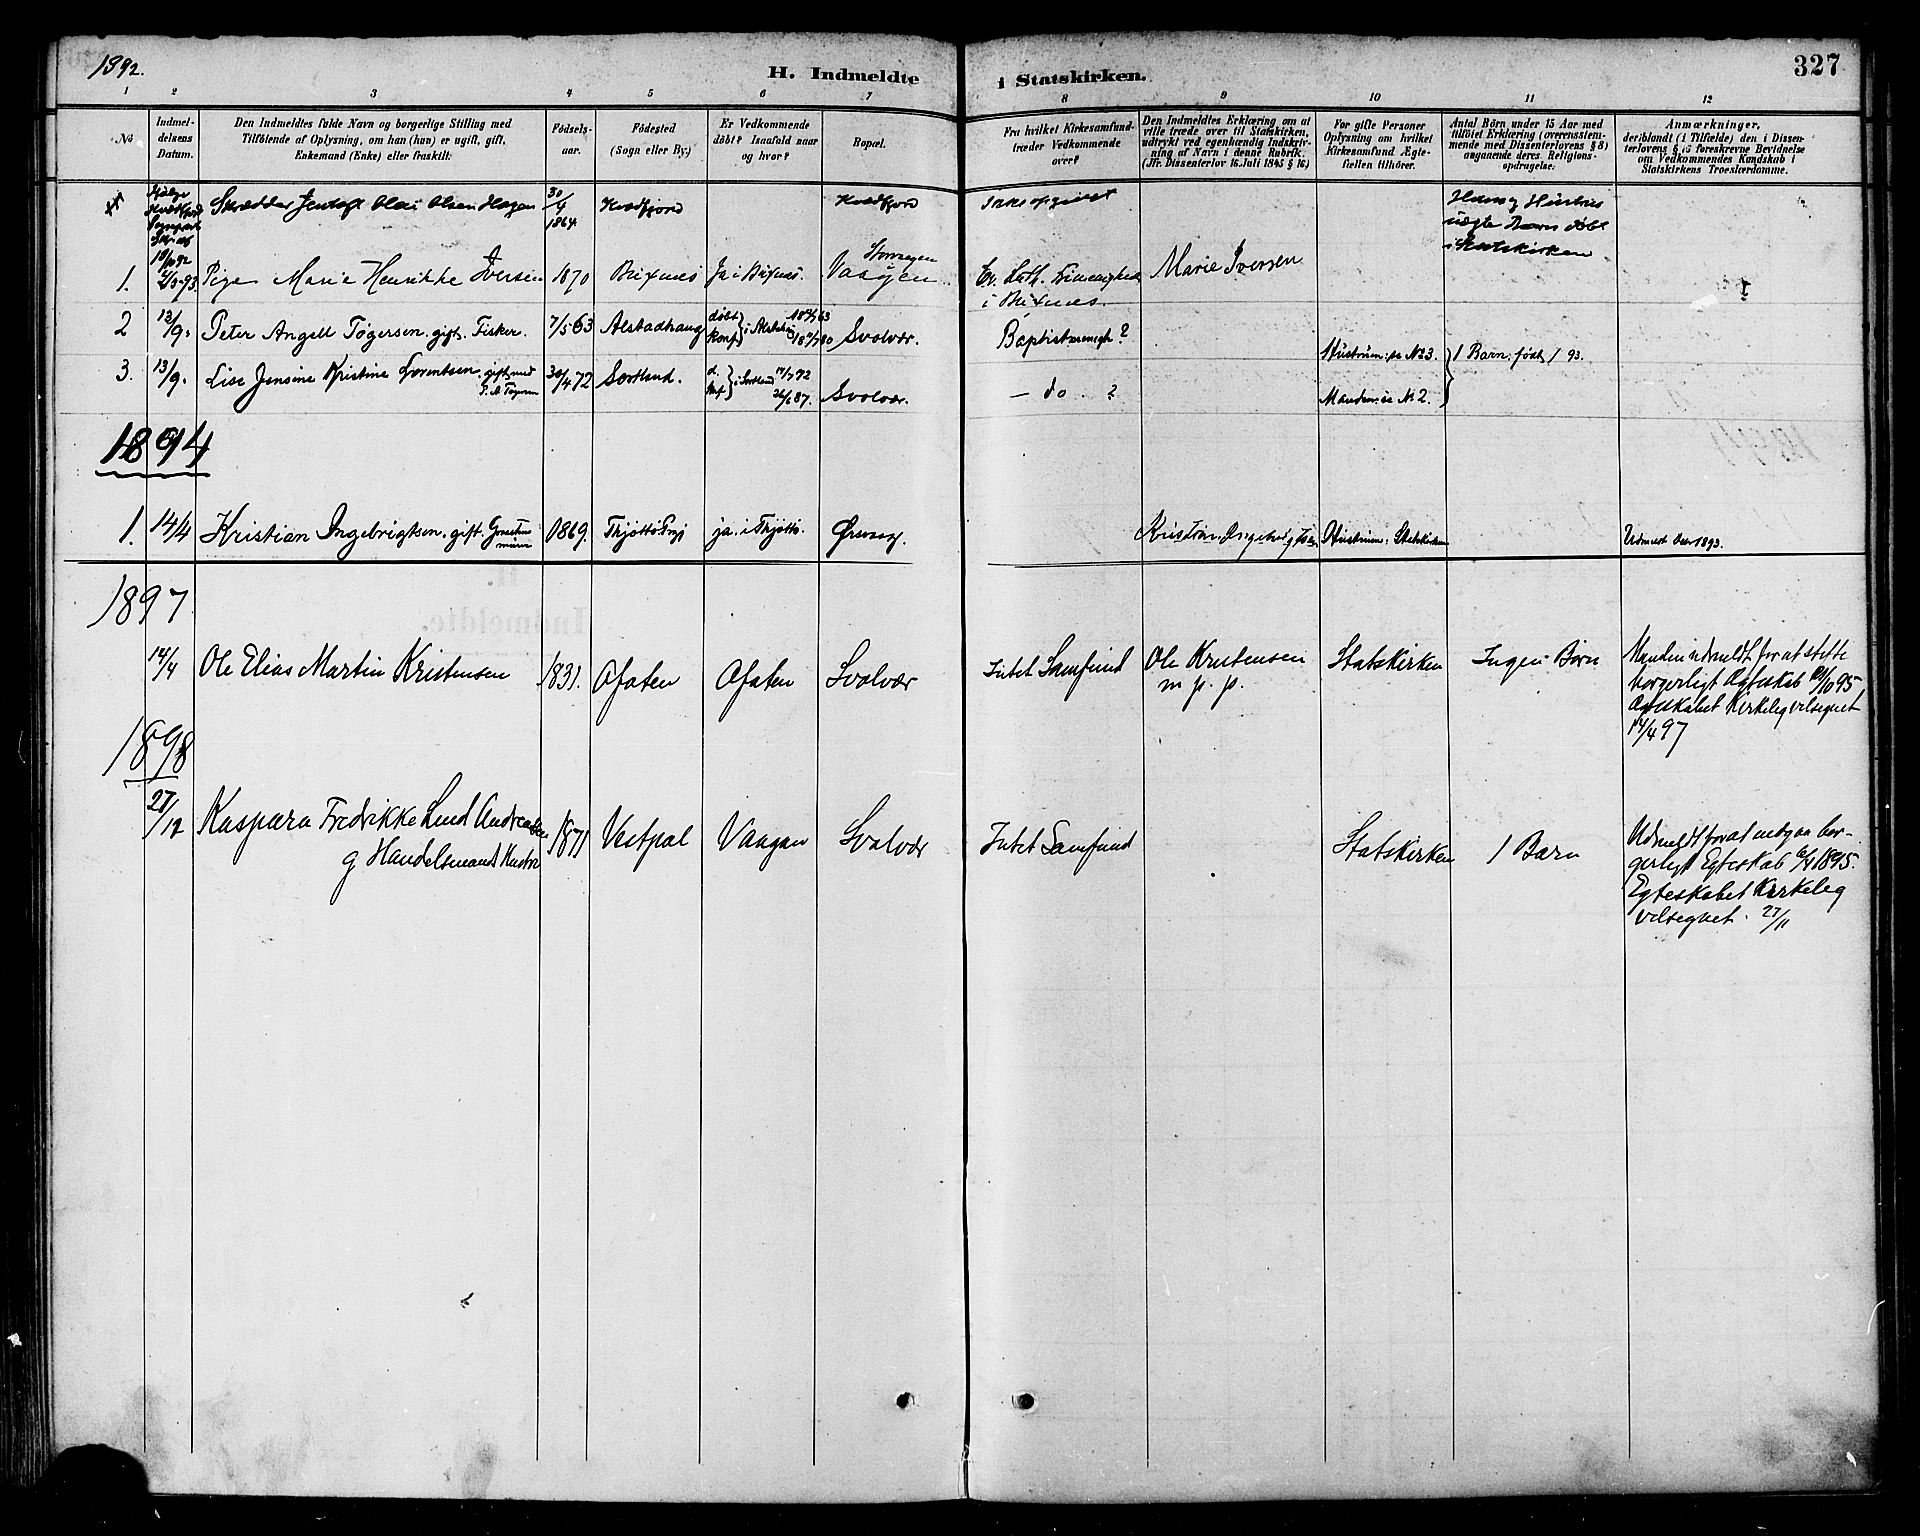 1892.
H. Indmeldte i Statskirken.
327
1 2 3 4 5 6 7 8 9 10 11 12
No
Indmeldelsens Datum.
Den Indmeldtes fulde Navn og borgerlige Stilling med
Tilföiende af Oplysning, om han (hun) er ugift, gift,
Enkemand (Enke) eller fraskilt:
Födselsaar.
Födested
(Sogn eller By:)
Er Vedkommende
döbt? Isaafald naar
og hvor?
Bopæl.
Fra hvilket Kirkesamfund
træder Vedkommende
over?
Den Indmeldtes Erklæring om at
ville træde over til Statskirken,
udtrykt ved egenhændig Indskrivning
af Navn i denne Rubrik
(Jfr. Dissenterlov 16. Juli 1845 § 16)
For gifte Personer
Oplysning om hvilket
Kirkesamfund Ægtefællen
tilhörer.
Antal Börn under 15 Aar med
tilföiet Erklæring (overensstemmende
med Dissenterlovens § 8)
angaaende deres Religionsopdragelse.
Anmærkninger,
deriblandt (i Tilfælde) den i Dissenterlovens
§ 16 foreskrevne Bevidnelse
om Vedkommendes Kundskab i
Statskirkens Troeslærdomme.
Skrædder Jentoft Olai Olsen Hagen 30/4 1864. Kvædfjord Kvædfjord Ikke opgivet
Hans og Hustrus
uægte Barn döbt
i Statskirken
1. Pige Marie Henrikke Iversen 1870 Buxnes Ja i Buxnes. Vaagen Ev. Luth. Frimenighed
i Buxnes. Marie Iversen
2 13/9. Peter Angell Tøgersen. gift. Fisker. 7/5 63 Alstadhaug döbt konf Svolvær. Baptistmenigh? Hustrum: se No 3. 1 Barn. født 1/93.
3. 13/9. Lise Jensine Kristine Lorentsen. gift med 30/4 72 Sortland. d. i Sortland Svolvær. — do. ? Manden: se No 2.
1894
1. 14/4 Kristian Ingebrigtsen. gift. 1869. Thjøttø Prgj ja. i Thjøttø. Ørsvaag. Kristian Ingebrigtsen Hustruen: Statskirken Udmeldt Dec 1893.
1897
14/4 Ole Elias Martin Kristensen 1831. Ofoten Ofoten Svolvær Intet Samfund Ole Kristensen
m. p. p. Statskirken Ingen Børn
Manden udmeldt for at stifte
borgerligt Ægteskab 12/10 95
Ægteskabet Kirkelig velsignet
14/4 97
1898
27/12 Kaspara Fredrikke Lund Andreasen
g Handelsmands Hustru 1871 Vestpol Vaagan Svolvær Intet Samfund Statskirken 1 Barn
Udmeldt for at indgaa borgerligt
Egteskab 6/4 1895.
Egteskabet Kirkelig
velsignet. 27/11